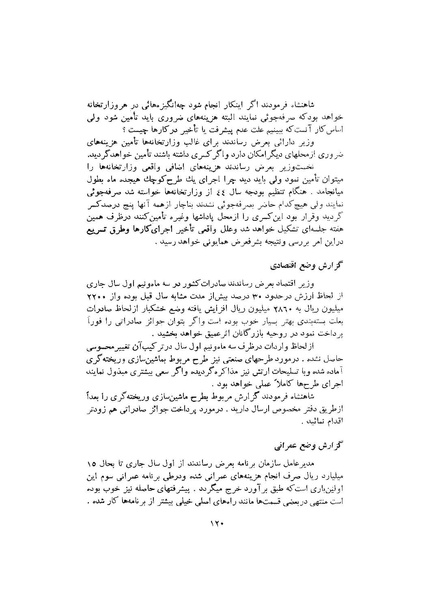 شاهنشاه فرمودند اگر اینکار انجام شود چه‌انگیزه‌هائی در هر وزارتخانه
خواهد بود که صرفه‌جوئی نمایند البته هزینه‌های ضروری باید تأمین شود ولی
اساس کار آنست که ببینیم علت عدم پیشرفت یا تأخیر در کارها چیست ؟
وزیر دارائی بعرض رساندند برای غالب وزارتخانه‌ها تأمین هزینه‌های
ضروری از محلهای دیگر امکان دارد واگر کسری داشته باشند تأمین خواهد گردید.
نخست‌وزیر بعرض رساندند هزینه‌های اضافی واقعی وزارتخانه‌ها را
میتوان تأمین نمود ولی باید دید چرا اجرای یك طرح کوچك هیجده ماه بطول
میانجامد . هنگام تنظیم بودجه سال ٤٤ از وزارتخانه‌ها خواسته شد صرفه‌جوئی
نمایند ولی هیچ‌کدام حاضر بصرفه‌جوئی نشدند بناچار از همه آنها پنج درصد کسر
گردید وقرار بود این کسری را از محل پاداشها وغیره تأمین کنند درظرف همین
هفته جلسه‌ای تشکیل خواهد شد وعلل واقعی تأخیر اجرای کارها وطرق تسریع
دراین امر بررسی ونتیجه بشرفعرض همایونی خواهد رسید .
گزارش وضع اقتصادی
وزیر اقتصاد بعرض رساندند صادرات کشور در سه ماه و نیم اول سال جاری
از لحاظ ارزش در حدود ۳۰ درصد بیش از مدت مشابه سال قبل بوده و از ۲۲۰۰
میلیون ریال به ۲۸۶۰ میلیون ریال افزایش یافته وضع خشکبار از لحاظ صادرات
بعلت بسته‌بندی بهتر بسیار خوب بوده است واگر بتوان جوائز صادراتی را فوراً
پرداخت نمود در روحیه بازرگانان اثر عمیق خواهد بخشید .
از لحاظ واردات درظرف سه ماه و نیم اول سال در ترکیب آن تغییر محسوسی
حاصل نشده . در مورد طرحهای صنعتی نیز طرح مربوط بماشین‌سازی وریخته‌گری
آماده شده وبا تسلیحات ارتش نیز مذاکره گردیده واگر سعی بیشتری مبذول نمایند
اجرای طرح‌ها کاملاً عملی خواهد بود .
شاهنشاه فرمودند گزارش مربوط بطرح ماشین‌سازی وریخته‌گری را بعداً
از طریق دفتر مخصوص ارسال دارید . درمورد پرداخت جوائز صادراتی هم زودتر
اقدام نمائید .
گزارش وضع عمرانی
مدیرعامل سازمان برنامه بعرض رساندند از اول سال جاری تا بحال ۱۵
میلیارد ریال صرف انجام هزینه‌های عمرانی شده ودرطی برنامه عمرانی سوم این
اولین‌باری است که طبق برآورد خرج میگردد . پیشرفتهای حاصله نیز خوب بوده
است منتهی در بعضی قسمت‌ها مانند راه‌های اصلی خیلی بیشتر از برنامه‌ها کار شده .
۱۲۰